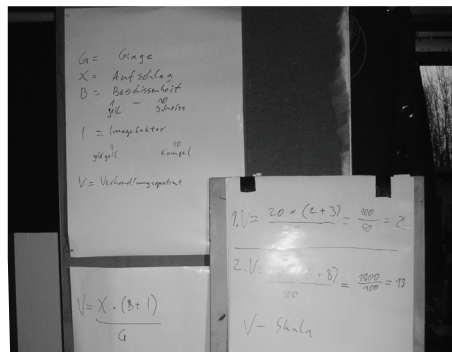 G = Gage
X = Aufschlag
B = Beschissenheit
1 - 10
geil Scheiss
I = Imagefaktor
1 10
geil Kompel
V = Verhandlungspotient
V = X · (B + I)
G
1. V = 20 × (2 + 3) = 100 = 2
50
2. V = + 8) = 1800 = 18
100 100
V - Skala